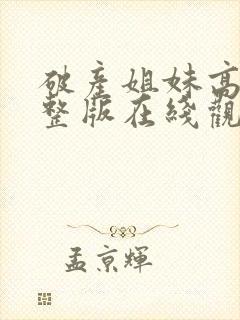 破産姐妹高
整版在綫觀
孟京輝